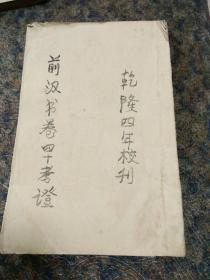 乾隆四年校刊
前汉书卷四十考證